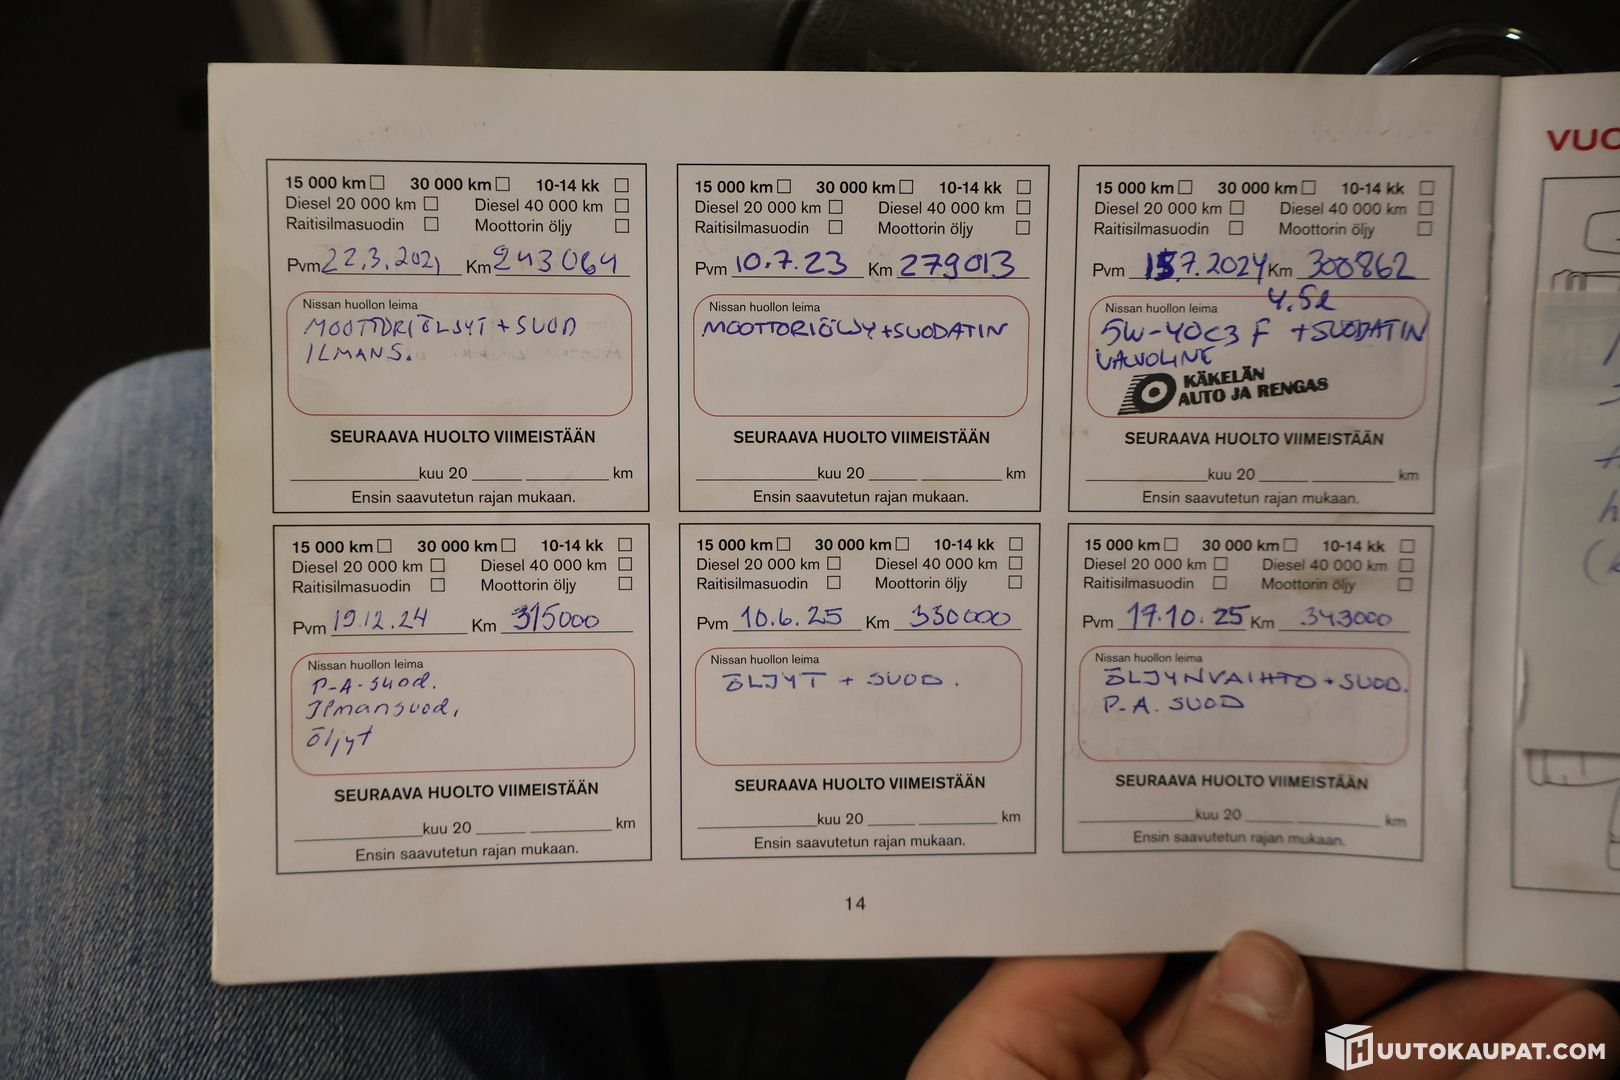 15 000 km 30 000 km 10-14 kk
Diesel 20 000 km Diesel 40 000 km
Raitisilmasuodin Moottorin öljy
Pvm 22.3.2021 Km 243064
Nissan huollon leima
MOOTTORIÖLJYT + SUOD
ILMANS.
SEURAAVA HUOLTO VIIMEISTÄÄN
kuu 20 km
Ensin saavutetun rajan mukaan.
15 000 km 30 000 km 10-14 kk
Diesel 20 000 km Diesel 40 000 km
Raitisilmasuodin Moottorin öljy
Pvm 10.7.23 Km 279013
Nissan huollon leima
MOOTTORIÖLJY + SUODATIN
SEURAAVA HUOLTO VIIMEISTÄÄN
kuu 20 km
Ensin saavutetun rajan mukaan.
15 000 km 30 000 km 10-14 kk
Diesel 20 000 km Diesel 40 000 km
Raitisilmasuodin Moottorin öljy
Pvm 15.7.2024 Km 300862
Nissan huollon leima 4.5l
5W-40 C3 F + SUODATIN
VALVOLINE
KÄKELÄN
AUTO JA RENGAS
SEURAAVA HUOLTO VIIMEISTÄÄN
kuu 20 km
Ensin saavutetun rajan mukaan.
15 000 km 30 000 km 10-14 kk
Diesel 20 000 km Diesel 40 000 km
Raitisilmasuodin Moottorin öljy
Pvm 19.12.24 Km 315000
Nissan huollon leima
P-A-suod.
Ilmansuod,
öljyt
SEURAAVA HUOLTO VIIMEISTÄÄN
kuu 20 km
Ensin saavutetun rajan mukaan.
15 000 km 30 000 km 10-14 kk
Diesel 20 000 km Diesel 40 000 km
Raitisilmasuodin Moottorin öljy
Pvm 10.6.25 Km 330000
Nissan huollon leima
ÖLJYT + SUOD.
SEURAAVA HUOLTO VIIMEISTÄÄN
kuu 20 km
Ensin saavutetun rajan mukaan.
15 000 km 30 000 km 10-14 kk
Diesel 20 000 km Diesel 40 000 km
Raitisilmasuodin Moottorin öljy
Pvm 17.10.25 Km 343000
Nissan huollon leima
ÖLJYNVAIHTO + SUOD.
P-A. SUOD
SEURAAVA HUOLTO VIIMEISTÄÄN
kuu 20 km
Ensin saavutetun rajan mukaan.
14
VUO
HUUTOKAUPAT.COM